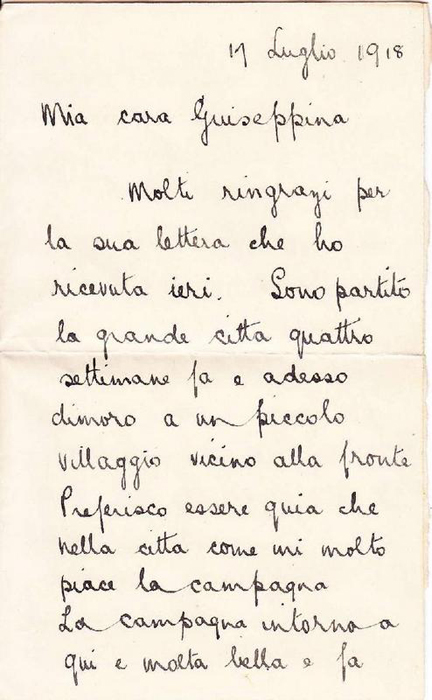 17 Luglio 1918
Mia cara Guiseppina
Molti ringrazi per
la sua lettera che ho
ricevuta ieri. Sono partito
la grande citta quattro
settimane fa e adesso
dimoro a un piccolo
villaggio vicino alla fronte
Preferisco essere quia che
nella citta come mi molto
piace la campagna
La campagna intorno a
qui e molta bella e fa